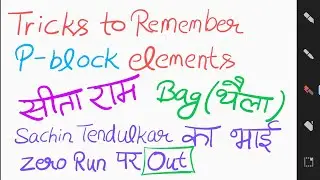 Tricks to Remember
P-block elements
सीता राम Bag (थैला)
Sachin Tendulkar का भाई
Zero Run पर Out